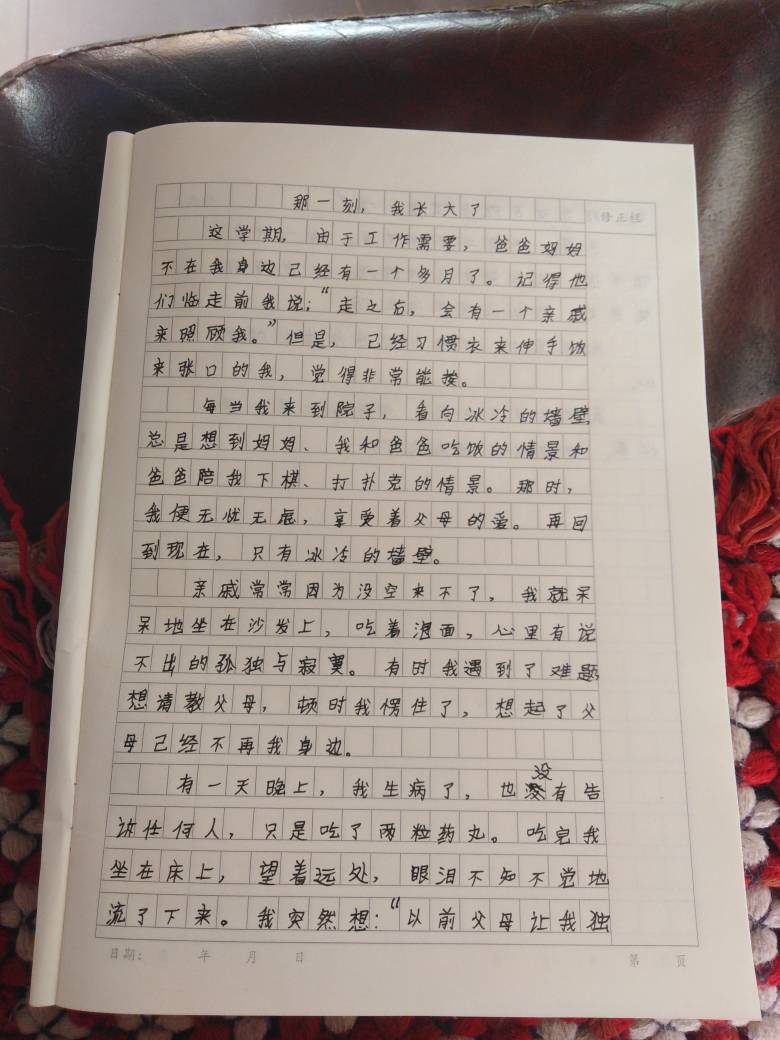 那一刻，我长大了
修正栏
这学期，由于工作需要，爸爸妈妈
不在我身边已经有一个多月了。记得他
们临走前我说："走之后，会有一个亲戚
来照顾我。"但是，已经习惯衣来伸手饭
来张口的我，觉得非常能挨。
每当我来到院子，看向冰冷的墙壁
总是想到妈妈、我和爸爸吃饭的情景和
爸爸陪我下棋、打扑克的情景。那时，
我便无忧无虑，享受着父母的爱。再回
到现在，只有冰冷的墙壁。
亲戚常常因为没空来不了，我就呆
呆地坐在沙发上，吃着泡面，心里有说
不出的孤独与寂寞。有时我遇到了难题
想请教父母，顿时我愣住了，想起了父
母已经不再我身边。
有一天晚上，我生病了，也没有告
诉任何人，只是吃了两粒药丸。吃完我
坐在床上，望着远处，眼泪不知不觉地
流了下来。我突然想："以前父母让我独
日期： 年 月 日 第 页